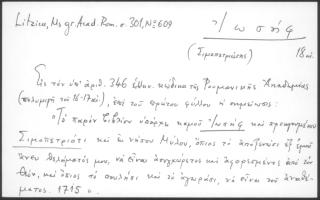 Litzica, Ms gr. Acad. Rom. σ. 301, № 609
Ἰωσήφ
(Σιμοπετριώτης) 18 αἰ.
Εἰς τὸν ὑπ' ἀριθ. 346 ἑλλην. κώδικα τῆς Ρουμανικῆς Ἀκαδημίας
(τοῦ 16-17 αἰ.), ἐπὶ τοῦ πρώτου φύλλου ἡ σημείωσις:
"Τὸ παρὸν βιβλίον ὑπάρχει καμοῦ Ἰωσὴφ καὶ
Σιμοπετριότι καὶ ἐκ νήσου Μήλου, ὅπιος τὸ ἀποξενόσι ἐξ ἐμοῦ
ἄνευ θελήματός μου, νὰ εἶναι ἀσυγχόρετος καὶ ἀφορεσμένος ἀπὸ τὸν
Θεόν, καὶ ὅπιος τὸ πουλήσι καὶ τὸ ἀγοράσι, νὰ εἶναι τοῦ ἀναθέ-
ματος. 1715".